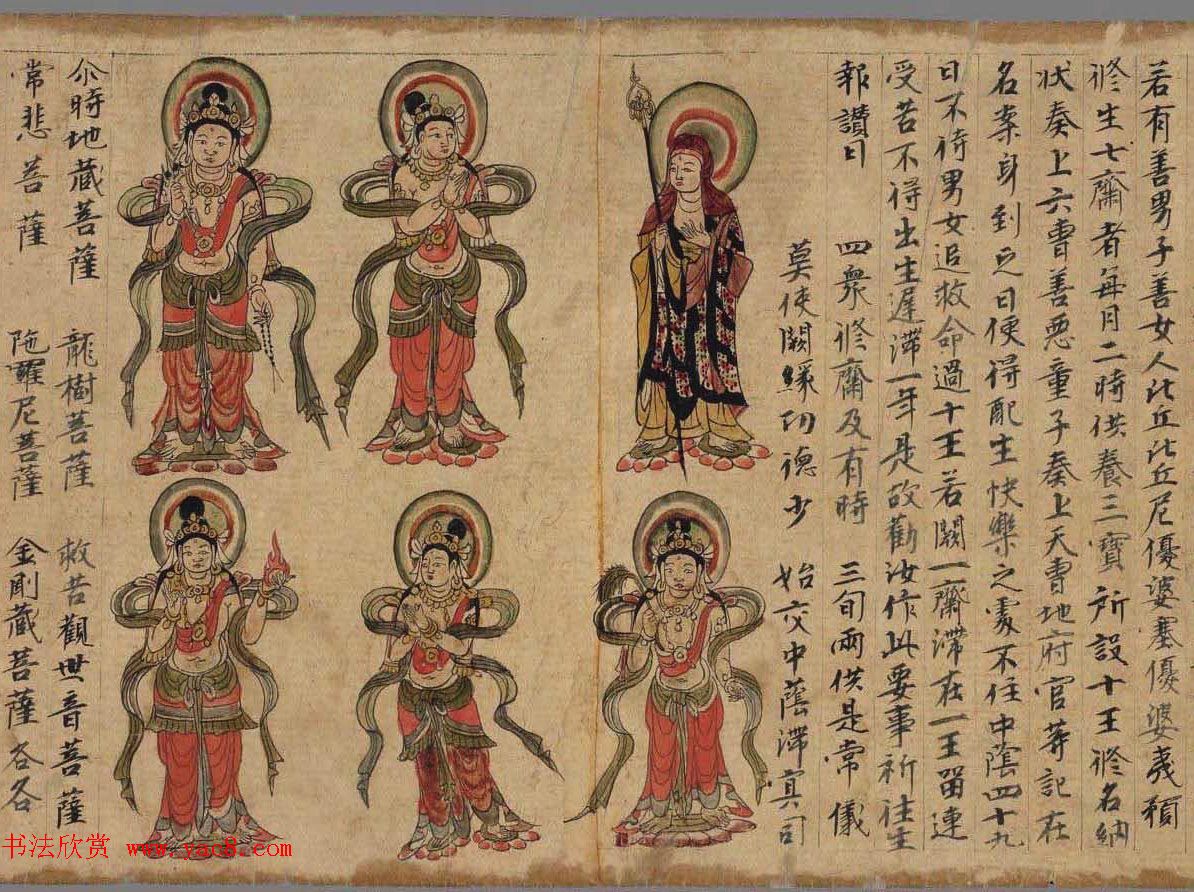 若有善男子善女人比丘比丘尼優婆塞優婆夷預
修生七齋者每月二時供養三寳所設十王修名納
狀奏上六曹善惡童子奏上天曹地府官等記在
名案身到之日便得配生快樂之處不住中蔭四十九
日不待男女追救命過十王若闕一齋滯在一王留連
受苦不得出生遲滯一年是故勸汝作此要事祈往生
報讚曰 四衆修齋及有時 三旬兩供是常儀
莫使闕緣功德少 始交中蔭滯冥司
尒時地藏菩薩 龍樹菩薩 救苦觀世音菩薩
常悲菩薩 陁羅尼菩薩 金剛藏菩薩各各
书法欣赏 www.yac8.com